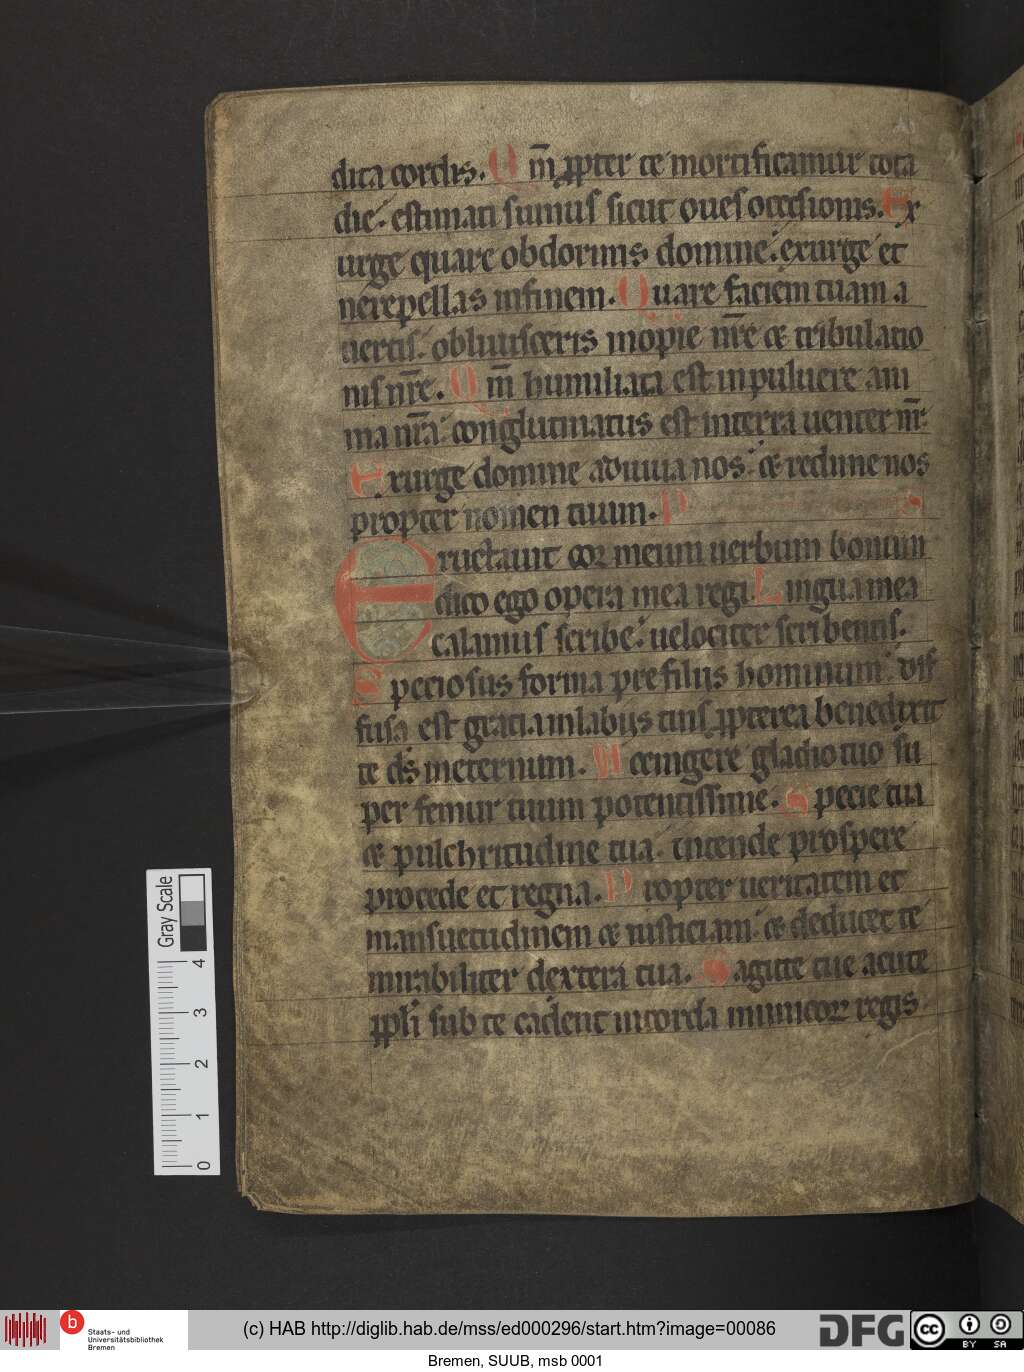 dita cordis. Qm̄ ꝓpter te mortificamur tota
die. estimati sumus sicut oues occisionis. Ex
urge quare obdormis domine. exurge et
nerepellas infinem. Quare faciem tuam a
uertis. obliuisceris inopie nr̄e ⁊ tribulatio
nis nr̄e. Qm̄ humiliata est inpuluere ani
ma nr̄a. conglutinatus est interra uenter nr̄.
Exurge domine adiuua nos. ⁊ redime nos
propter nomen tuum. P
Eructauit coꝛ meum uerbum bonum
dico ego opera mea regi. Lingua mea
calamus scribe. uelociter scribentis.
Speciosus forma pre filiis hominum. dif
fusa est gratia inlabiis tuis ꝓpterea benedixit
te ds̄ ineternum. Accingere gladio tuo su
per femur tuum potentissime. Specie tua
⁊ pulchritudine tua. intende prospere
procede et regna. Propter ueritatem et
mansuetudinem ⁊ iusticiam. ⁊ deducet te
mirabiliter dextera tua. Sagitte tue acute
ppl̄i sub te cadent incorda inimicoꝝ regis.
Gray Scale
4
3
2
1
0
b
Staats- und
Universitätsbibliothek
Bremen
(c) HAB http://diglib.hab.de/mss/ed000296/start.htm?image=00086
DFG
cc
BY SA
Bremen, SUUB, msb 0001